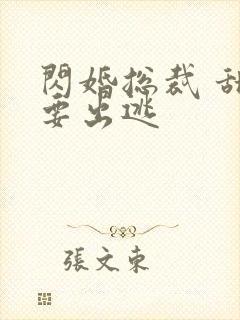 閃婚总裁 甜
要出逃
張文東